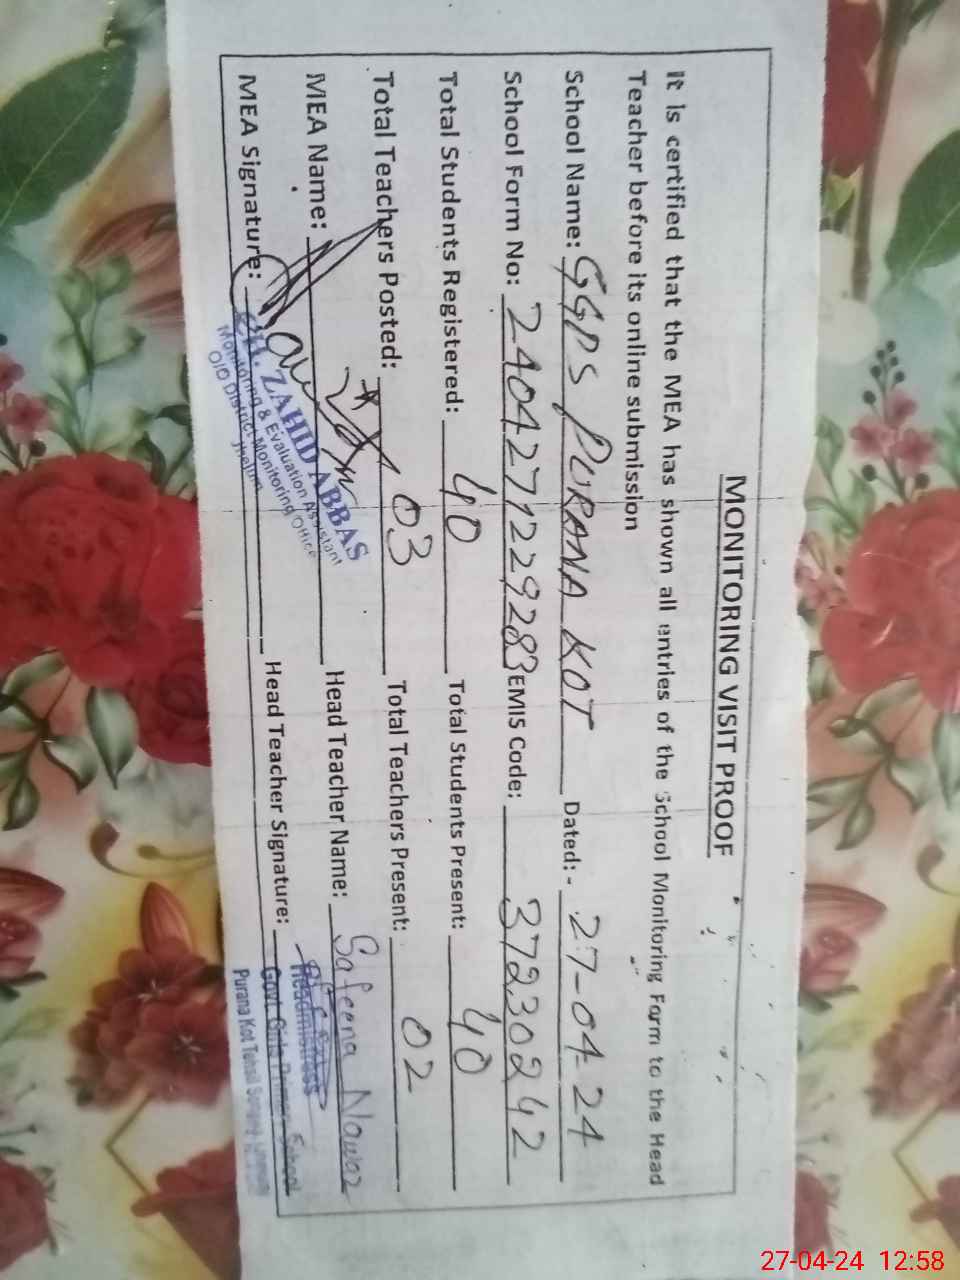 MONITORING VISIT PROOF
It is certified that the MEA has shown all entries of the School Monitoring Form to the Head
Teacher before its online submission
School Name: GGPS PURANA KOT Dated: - 27-04-24
School Form No: 2404271229283 EMIS Code: 37230242
Total Students Registered: 40 Total Students Present: 40
Total Teachers Posted: 03 Total Teachers Present: 02
MEA Name: Head Teacher Name: Safeena Nawaz
MEA Signature: Head Teacher Signature:
CH. ZAHID ABBAS
Monitoring & Evaluation Assistant
O/O District Monitoring Office
Jhelum
Headmistress
Govt. Girls Primary School
Purana Kot Tehsil
27-04-24 12:58